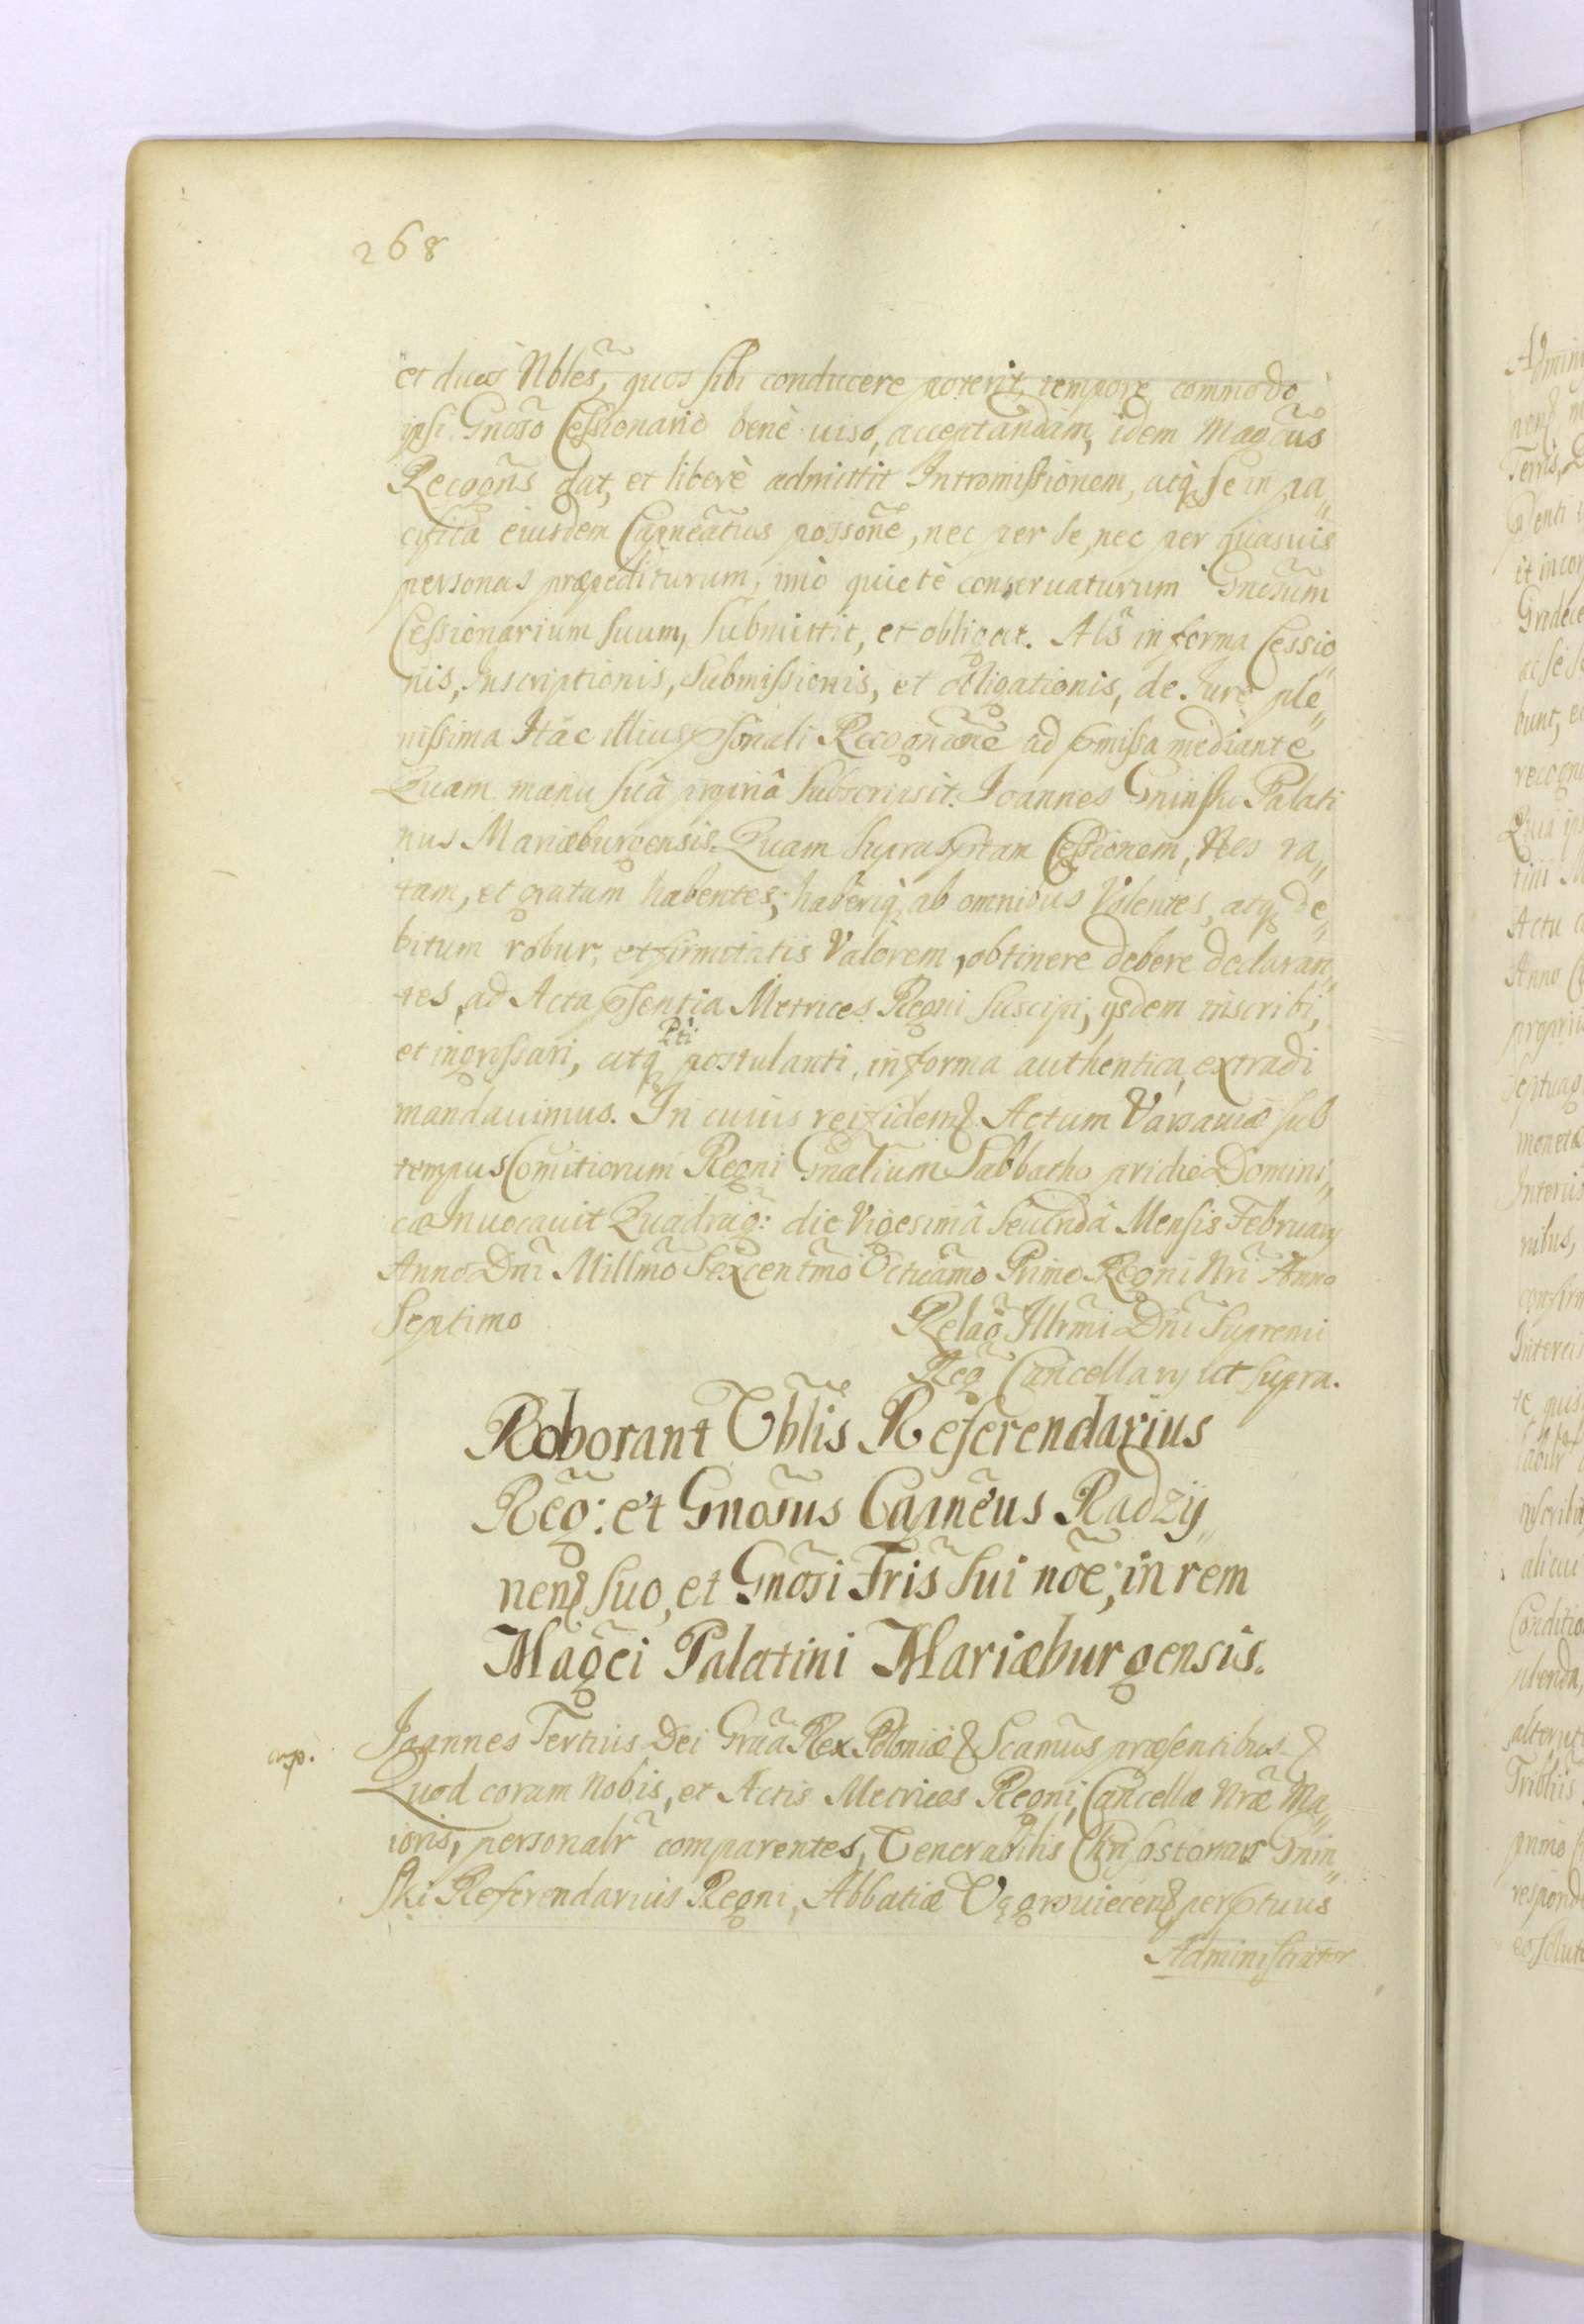 268
et duos Nbles, quos sibi conducere poterit, tempore commodo
ipsi Gnoso Cessionario benè uiso, acceptandam, idem Magcus
Recogns dat, et liberè admittit Intromissionem, atq se in pa„
cifica eiusdem Capneatus possone, nec per se, nec per quasuis
personas præpediturum, imò quietè conseruaturum Gnosum
Cessionarium suum, submittit, et obligat. Als in forma Cessio„
nis, Inscriptionis, submissionis, et obligationis, de Jure ple„
nissima Hac illius psonali Recognone ad pmissa mediante
Quam manu suâ propriâ subscripsit. Joannes Gninski Palati
nus Mariæburgensis. Quam supra sptam Cessionem, Nos ra„
tam, et gratam habentes, haberiq ab omnibus Volentes, atq de„
bitum robur, et firmitatis Valorem, obtinere debere declaran„
tes, ad Acta psentia Metrices Regni suscipi, ijsdem inscribi,
et ingrossari, atq Pti postulanti, in forma authentica, extradi
mandauimus. In cuius rei fidem & Actum Varsauiæ sub
tempus Comitiorum Regni Gnalium Sabbatho pridie Domini„
cæ Inuocauit Quadrag: die Vigesimâ secundâ Mensis February
Anno Dni Millmo Sexcentmo Octuamo Primo Regni Nri Anno
Septimo
Relao Illrmi Dni Supremi
Reg Cancellary ut supra.
Roborant Vblis Referendarius
Reg: et Gnosus Capneus Radzij„
nen& suo, et Gnosi Fris sui noe, in rem
Magci Palatini Mariæburgensis.
Joannes Tertius Dei Grâa Rex Poloniæ & Scamus præsentibus &
Quod coram Nobis, et Actis Metrices Regni, Cancellæ Nræ Ma„
ioris, personalr comparentes, Venerabilis Chrisostomus Gnin„
ski Referendarius Regni, Abbatiæ Vągrouiecen& perptuus
Administrator